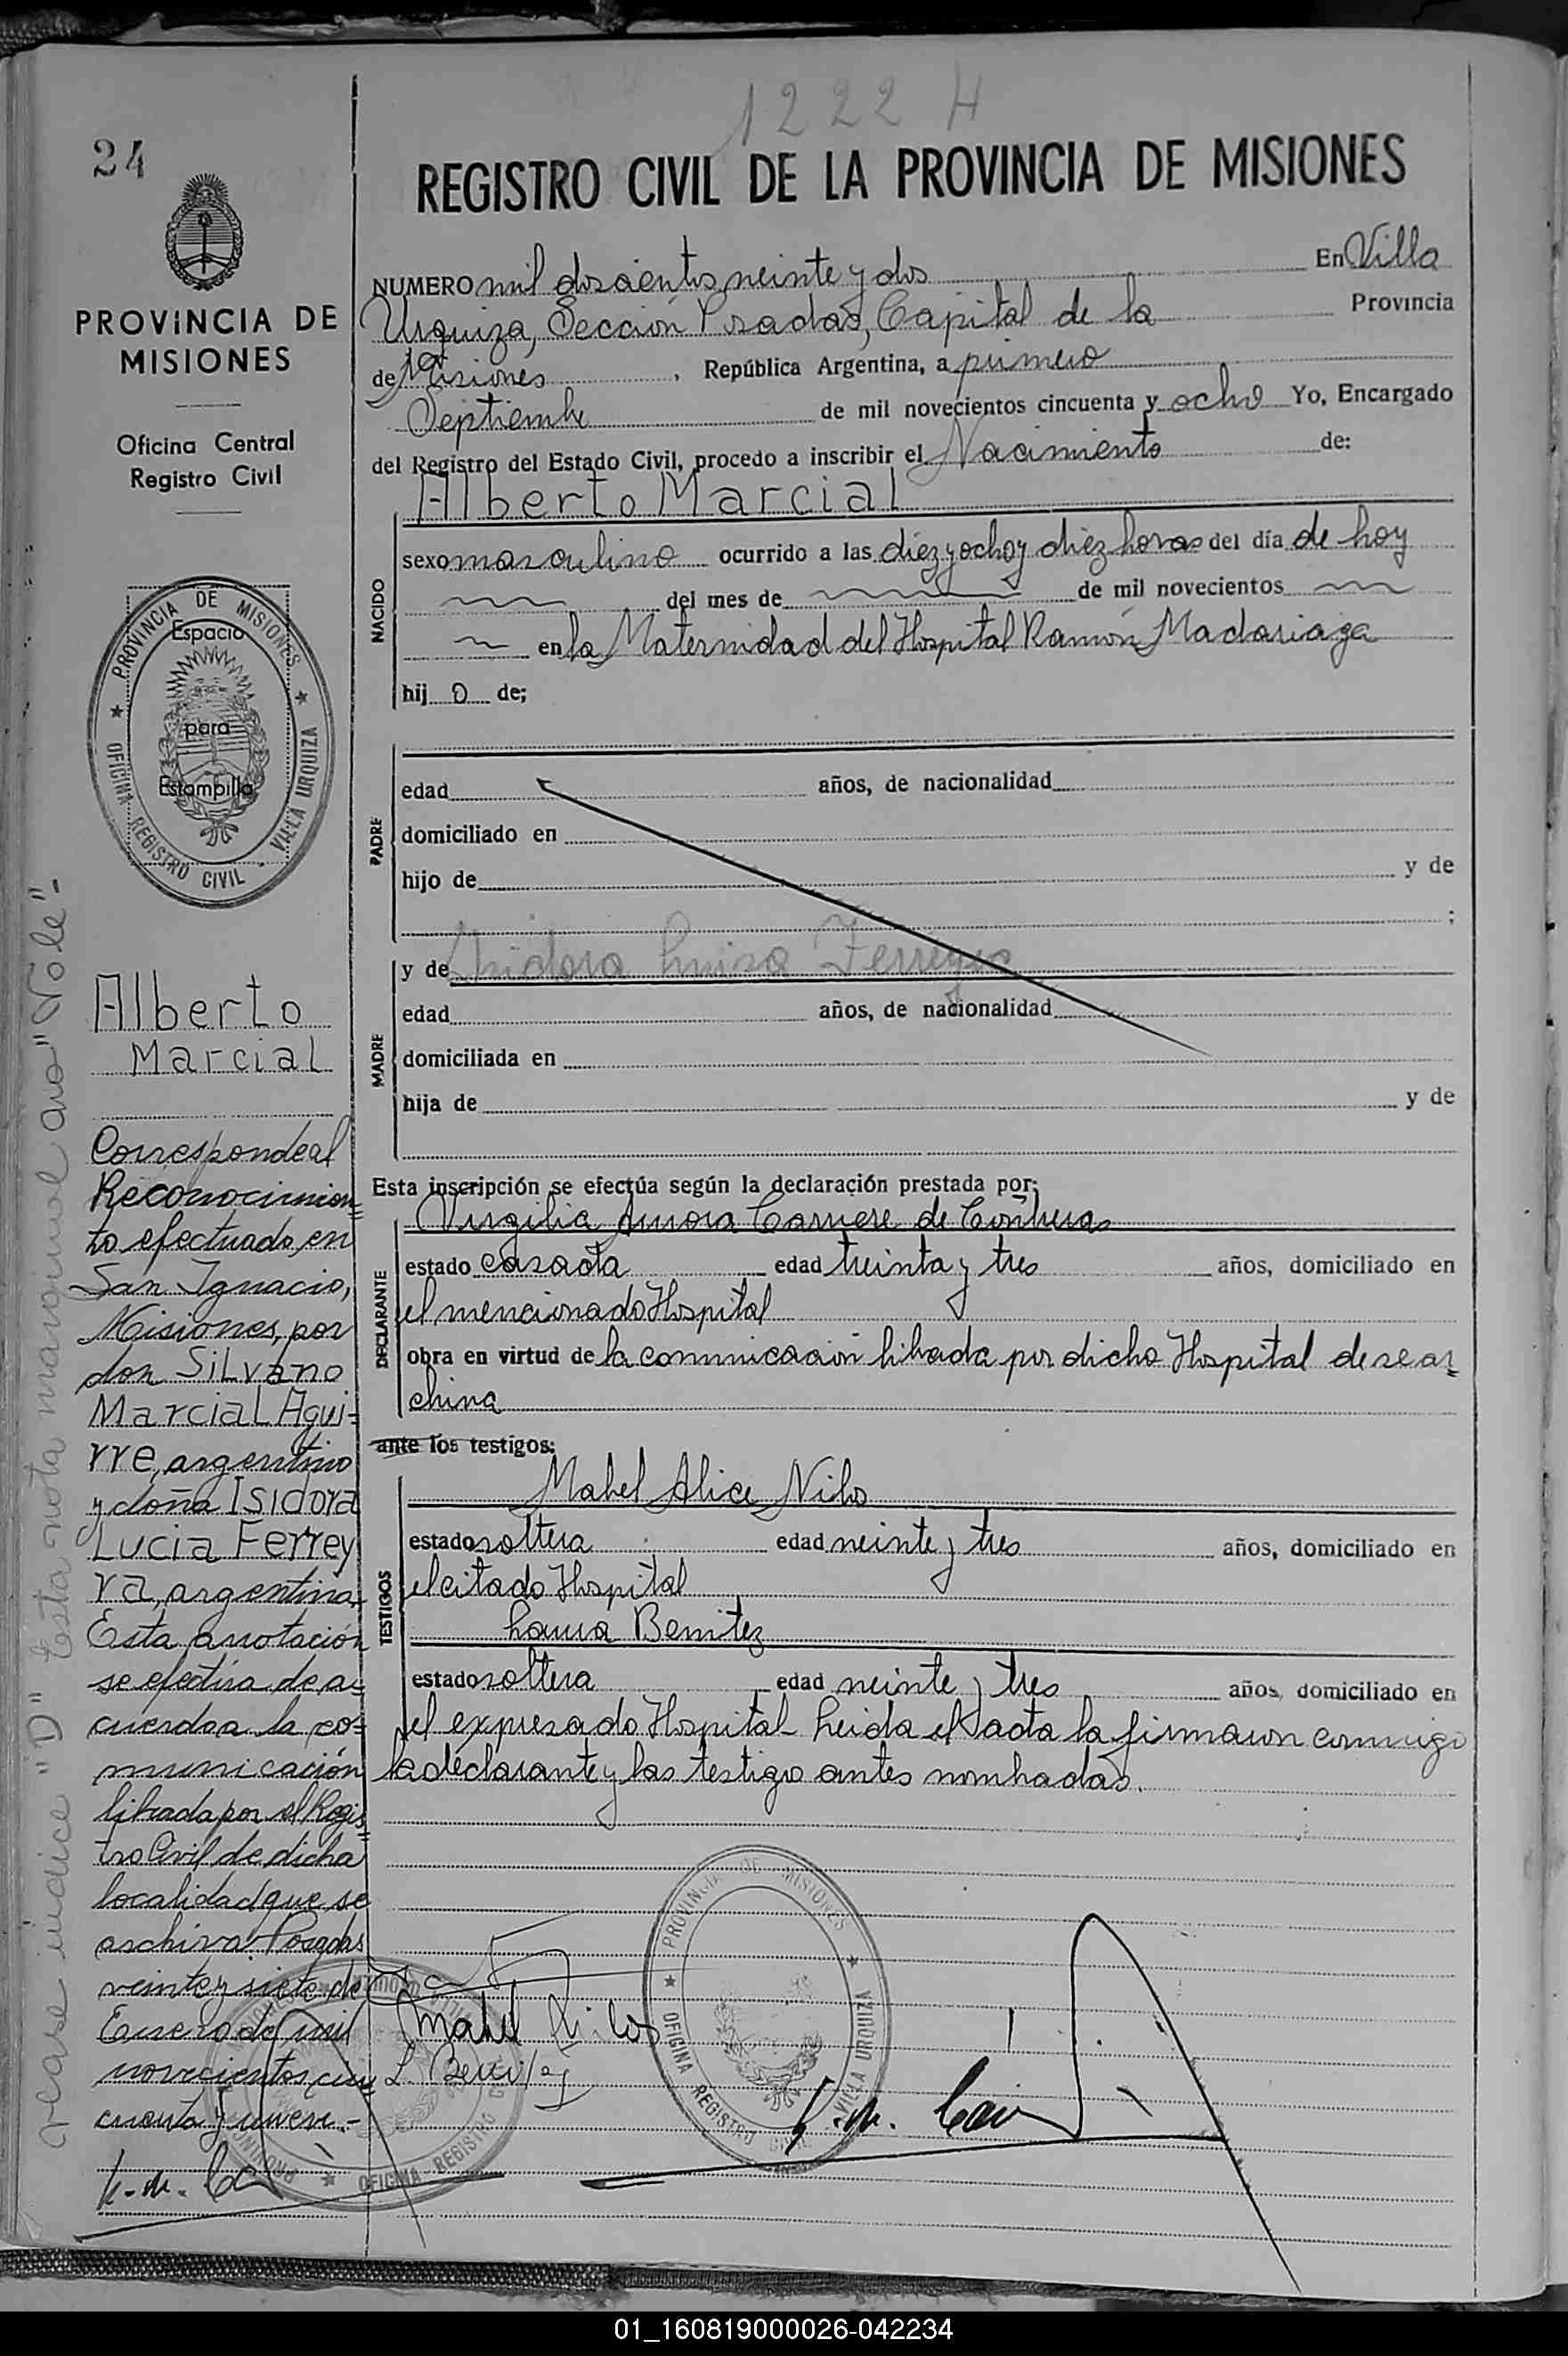 1222 H
24
REGISTRO CIVIL DE LA PROVINCIA DE MISIONES
PROVINCIA DE
MISIONES
Oficina Central
Registro Civil
NUMERO mil doscientos veinte y dos En Villa
Urquiza, Sección Posadas, Capital de la Provincia
de Misiones, República Argentina, a primero
Septiembre de mil novecientos cincuenta y ocho Yo, Encargado
del Registro del Estado Civil, procedo a inscribir el Nacimiento de:
Alberto Marcial
NACIDO
sexo masculino ocurrido a las diez y ocho y diez horas del día de hoy
del mes de de mil novecientos
en la Maternidad del Hospital Ramón Madariaga
hij o de;
PROVINCIA DE MISIONES
OFICINA REGISTRO CIVIL - VILLA URQUIZA
Espacio
para
Estampilla
PADRE
edad años, de nacionalidad
domiciliado en
hijo de y de
;
MADRE
y de Isidora Luisa Ferreyra
edad años, de nacionalidad
domiciliada en
hija de y de
Esta inscripción se efectúa según la declaración prestada por:
DECLARANTE
Virgilia Aurora de
estado casada edad treinta y tres años, domiciliado en
el mencionado Hospital
obra en virtud de la comunicación librada por dicho Hospital de se ar=
china
ante los testigos:
TESTIGOS
Mabel Alice Nilos
estado soltera edad veinte y tres años, domiciliado en
el citado Hospital
Laura Benitez
estado soltera edad veinte y tres años, domiciliado en
el expresado Hospital - Leida el acta la firmaron conmigo
la declarante y las testigo antes nombradas.
Alberto
Marcial
Corresponde al
Reconocimien=
to efectuado en
San Ignacio,
Misiones, por
don SiLvano
MarciaL Agui=
rre, argentino
y doña Isidora
Lucia Ferrey
ra, argentina.
Esta anotación
se efectúa de a=
cuerdo a la co=
municación
librada por el Regis=
tro Civil de dicha
localidad que se
archiva. Posadas
veinte y siete de
Enero de mil
novecientos cin=
cuenta y nueve.-
vease indice "D" Esta nota marginal "Vale".-
Mabel Nilos
L. Benitez
PROVINCIA DE MISIONES
OFICINA REGISTRO CIVIL VILLA URQUIZA
OFICINA REGISTRO
01_160819000026-042234